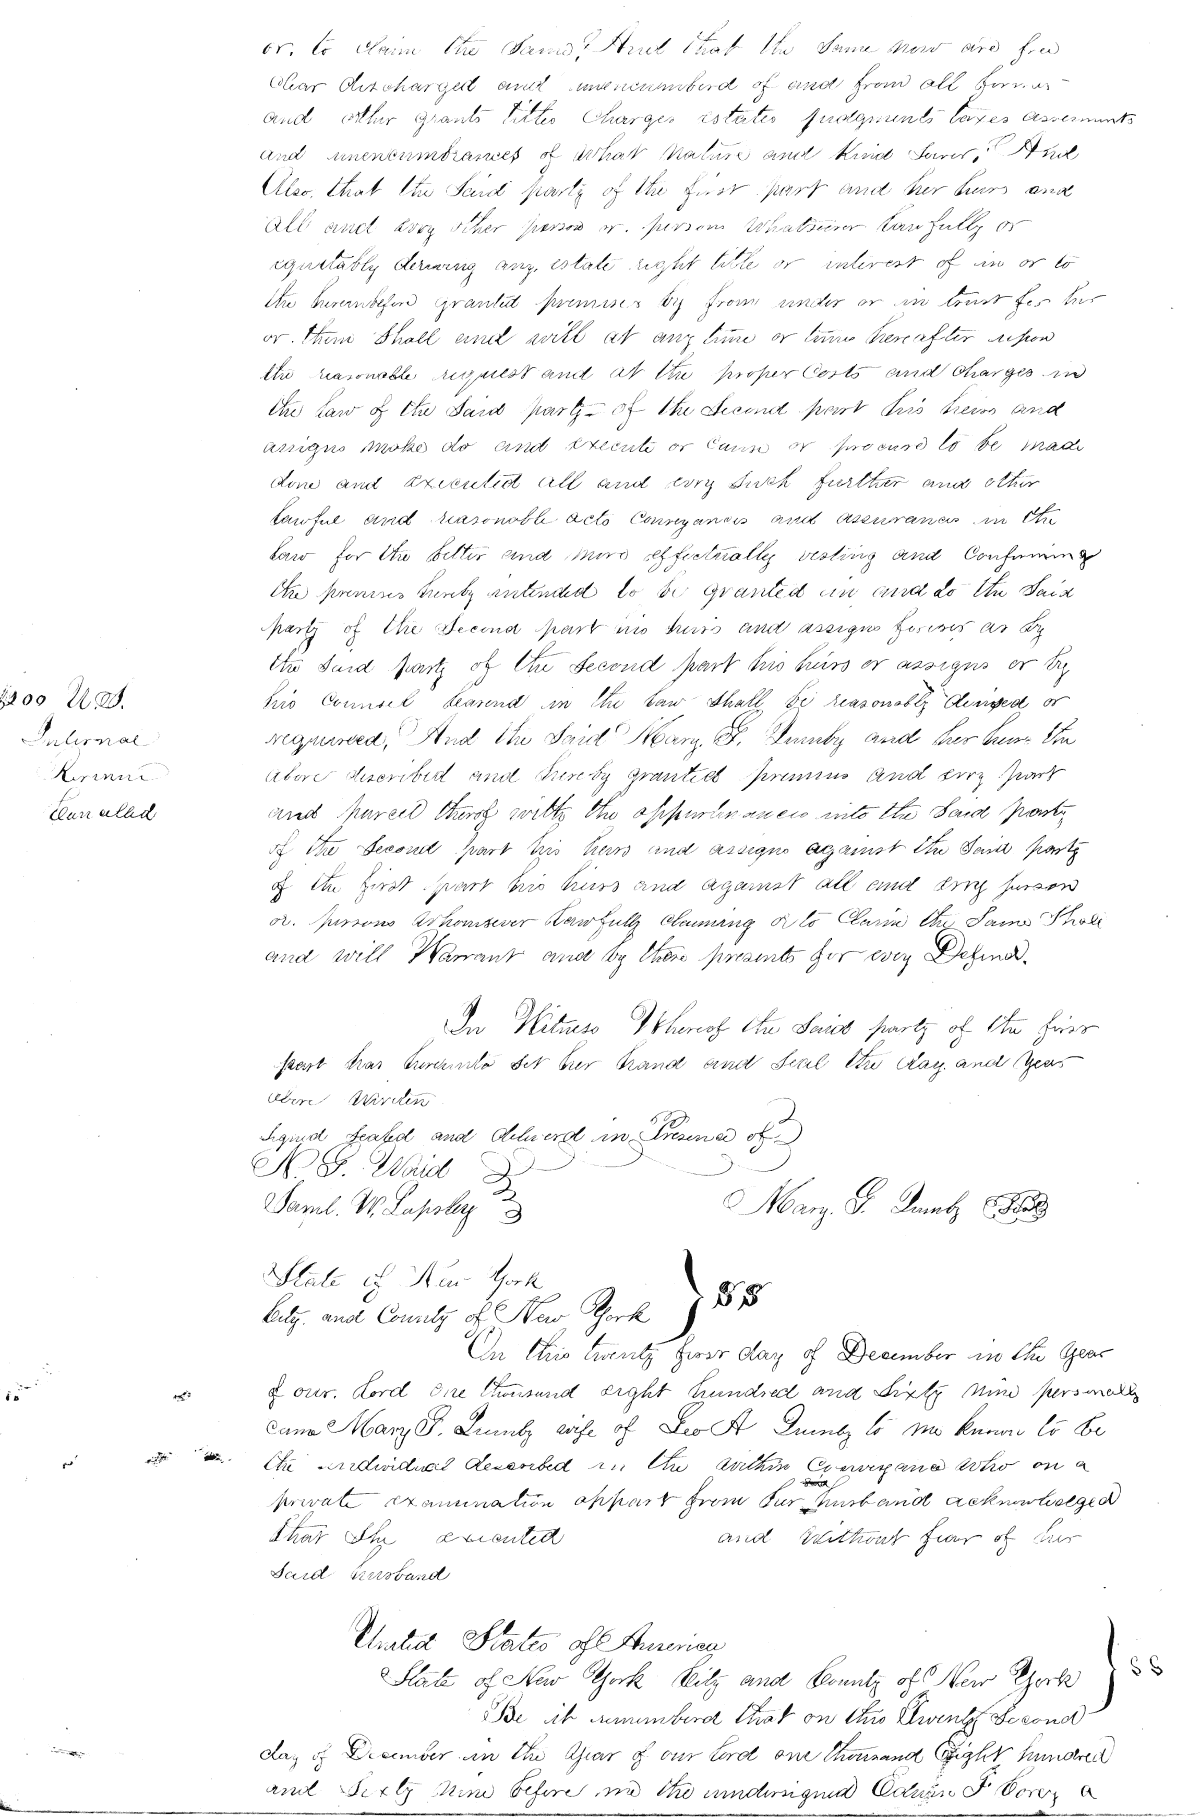 or. to claim the Same, And that the Same now are free
Clear discharged and unencumberd of and from all former
and other grants titles Charges estates judgments taxes assessments
and unencumbrances of What Nature and Kind Soever, And
Also. that the Said party of the first part and her heirs and
all and evry other person or. persons Whatsoever Lawfully or
equitably deriving any. estate right title or interest of in or to
the hereinbefore granted premises by from under or in trust for her
or. them Shall and will at any time or times hereafter upon
the reasonable request and at the proper Costs and Charges in
the Law of the Said party of the Second part his heirs and
assigns make do and execute or Cause or procure to be made
done and executed all and evry Such further and other
Lawful and reasonable acts Conveyances and assurances in the
Law for the better and more effectually vesting and Confirming
the premises hereby intended to be granted in and to the Said
party of the Second part his heirs and assigns forever as by
the Said party of the Second part his heirs or assigns or by
$200 U.S.
his Counsel learend in the Law Shall be reasonably devised or
Internal
requireed, And the Said Mary. F. Quimby and her heirs the
Revenue
above described and hereby granted premises and evry part
Cancelled
and parcel therof with the appurtinances into the Said party
of the Second part his heirs and assigns against the Said party
of the first part his heirs and against all and evry person
or. persons Whomsever Lawfully claiming or to Claim the Same Shall
and will Warrant and by these presents for evey Defend.
In Witness Whereof the Said party of the first
part has hereinto Set her hand and Seal the day. and Year
above Wirtten
Signed Sealed and deliverd in Presence of
N. G. Waid
Saml. W. Lapsley
Mary. F. Quimby Seal
State of New York
City. and County of New York } SS
On this twenty first day of December in the Year
of our. Lord One thousand eight hundred and Sixty Nine personally
came Mary F. Quimby wife of Leo A Quimby to me known to be
the individual described in the within Conveyance Who on a
private examination appart from her husband acknowledged
that She executed and Without fear of her
Said husband
United States of America
State of New York City and County of New York } SS
Be it rememberd that on this Twenty Second
day of December in the Year of our Lord one thousand Eight hundred
and Sixty Nine before me the undersigned Edwin F Corey a